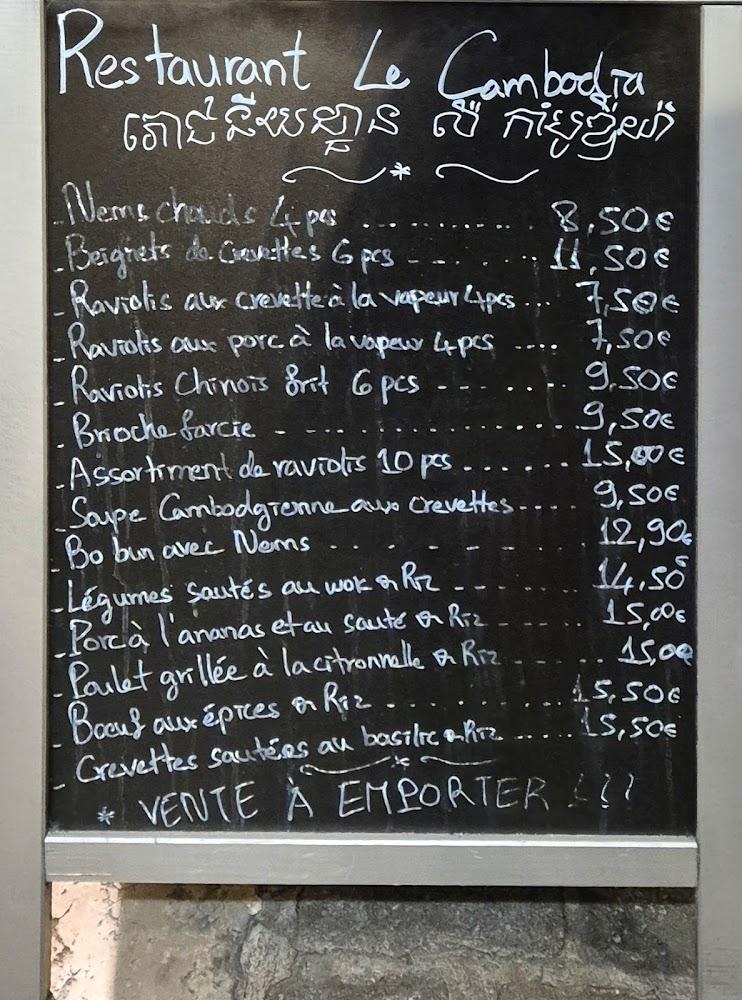 Restaurant Le Cambodia
ភោជនីយដ្ឋាន លើ កាំបូឌីយ៉ា
- Nems chauds 4 pcs ............ 8,50€
- Beignets de crevettes 6 pcs - - - - . 11,50€
- Raviolis aux crevette à la vapeur 4pcs ... 7,50€
- Raviolis aux porc à la vapeur 4 pcs .... 7,50€
- Raviolis Chinois frit 6 pcs - - - . . . . 9,50€
- Brioche farcie - ............ 9,50€
- Assortiment de raviolis 10 pcs ....... 15,00€
- Soupe Cambodgienne aux crevettes .... 9,50€
- Bo bun avec Nems . . - - - - ... 12,90€
- Légumes sautés au wok & Riz - - - .... 14,50
- Porc à l'ananas et au sauté & Riz - - .... 15,00€
- Poulet grillée à la citronnelle & Riz - - - - .. 15,00€
- Bœuf aux épices & Riz . . . . . . . 15,50€
- Crevettes sautées au basilic & Riz ..... 15,50€
* VENTE À EMPORTER !!!